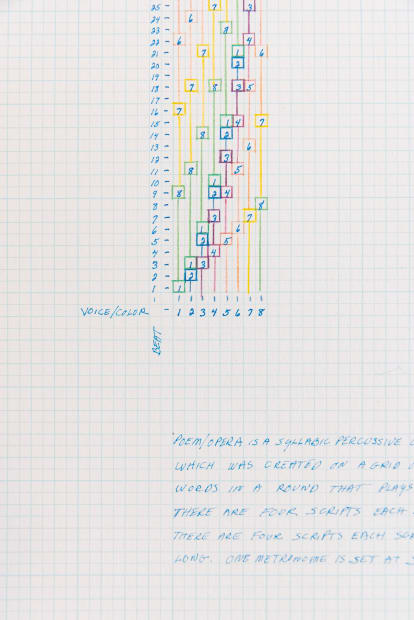 25 7 3
24 6
23 8
22 6 4
21 7 1 6
20 2
19
18 7 8 3 5
17
16 7
15 1 4 7
14 8 2
13 6
12 3
11 8 5
10 1
9 8 2 4
8 8
7 3 7
6 1 6
5 2 5
4 4
3 1 3
2 2
1 1
VOICE/COLOR - 1 2 3 4 5 6 7 8
BEAT
POEM/OPERA IS A SYLLABIC PERCUSSIVE
WHICH WAS CREATED ON A GRID
WORDS IN A ROUND THAT PLAYS
THERE ARE FOUR SCRIPTS EACH
THERE ARE FOUR SCRIPTS EACH
LONG. ONE METRONOME IS SET AT